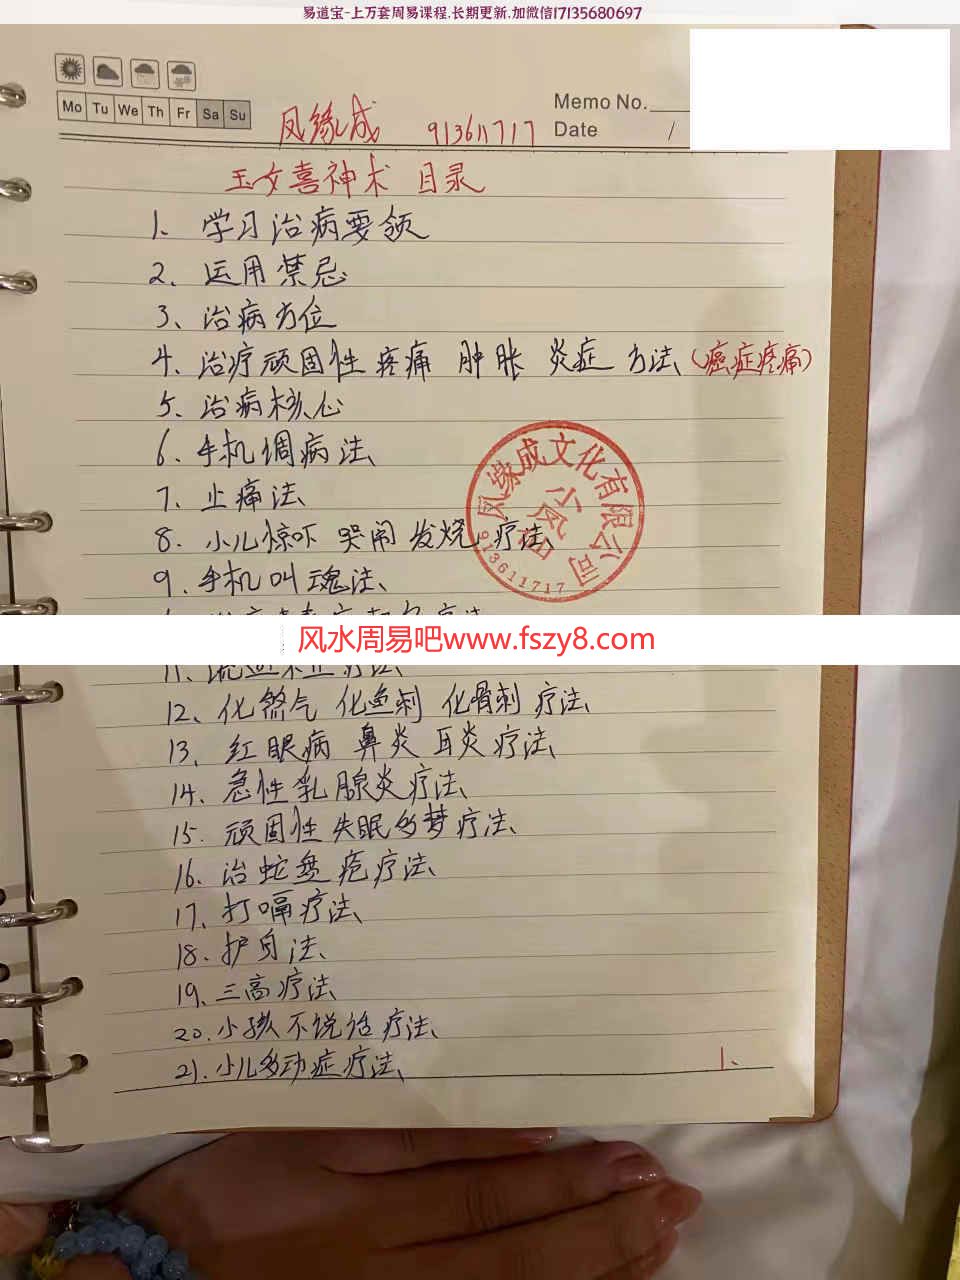 易道宝-上万套周易课程.长期更新.加微信17135680697
Mo Tu We Th Fr Sa Su
Memo No.
Date /
凤缘成 913611717
玉女喜神术 目录
1、学习治病要领
2、运用禁忌
3、治病方位
4、治疗顽固性疼痛 肿胀 炎症 方法(癌症疼痛)
5、治病核心
6.手机调病法、
7、止痛法、
8.小儿惊吓 哭闹 发烧 疗法、
9.手机叫魂法、
凤缘成文化有限公司
913611717
风水周易吧www.fszy8.com
12、化煞气 化鱼刺 化骨刺 疗法、
13、红眼病 鼻炎 耳炎 疗法、
14、急性乳腺炎疗法、
15.顽固性失眠多梦疗法、
16.治蛇盘疮疗法、
17、打嗝疗法、
18.护身法、
19、三高疗法
20.小孩不说话疗法、
21.小儿多动症疗法、
1、